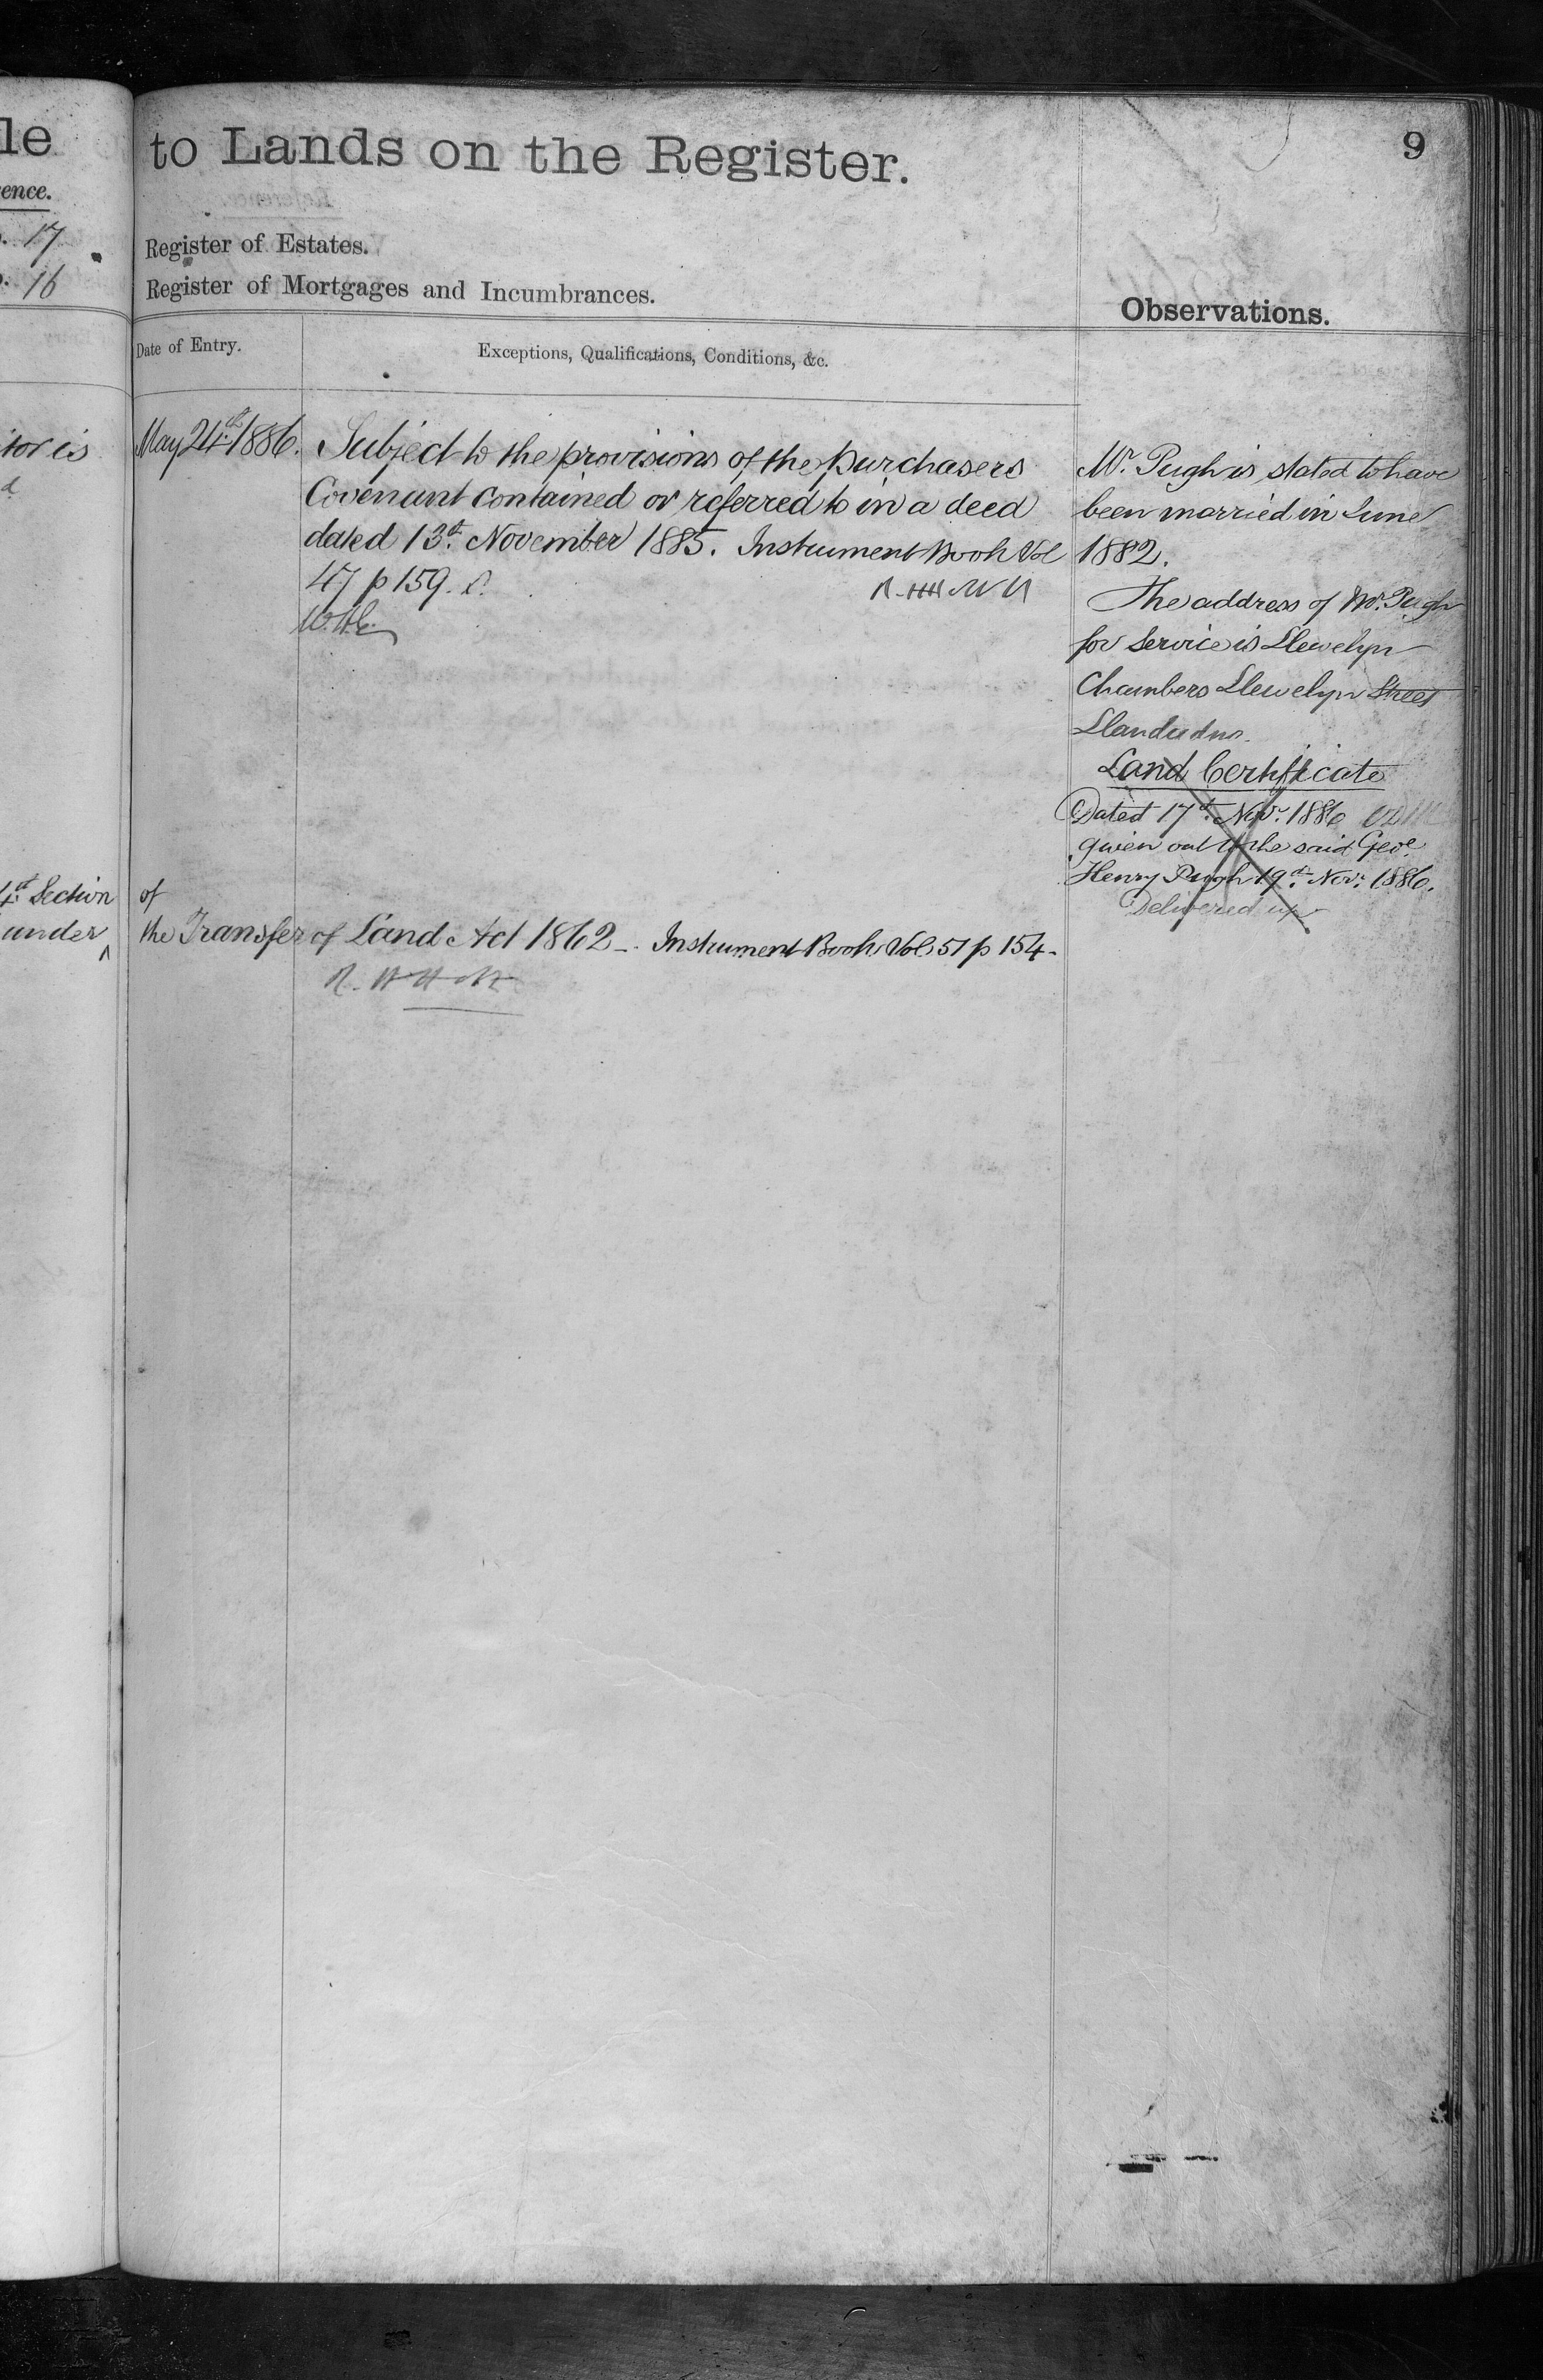 le
to Lands on the Register.
9
ence.
17
16
Register of Estates.
Register of Mortgages and Incumbrances.
Observations.
Date of Entry.
Exceptions, Qualifications, Conditions, &c.
itor is
d
May 24th 1886.
Subject to the provisions of the purchasers
Covenant contained or referred to in a deed
dated 13th November 1885. Instrument Book Vol
47 p 159.
Mr. Pugh is stated to have
been married in June
1882.
The address of Mr. Pugh
for service is Llewelyn
Chambers Llewelyn Street
Llandudno.
Land Certificate
Dated 17th Novr. 1886
given out to the said Geoe.
Henry Pugh 19th Novr. 1886.
Delivered up
Section of
under the Transfer of Land Act 1862 - Instrument Book Vol 51 p 154 -